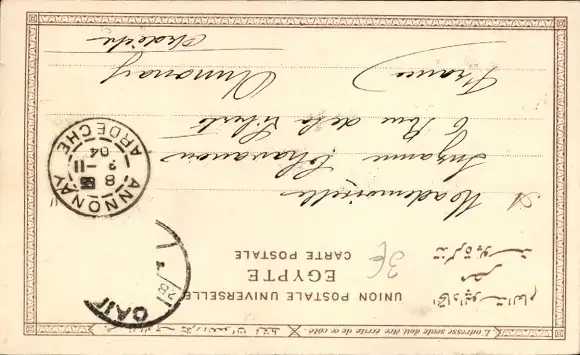 L'adresse seule doit être écrite de ce côté.
UNION POSTALE UNIVERSELLE
EGYPTE
CARTE POSTALE
3€
CAI
ANNONAY
8
2 - 11
04
ARDECHE
Mademoiselle
Suzanne Chavanon
6 Rue de la
Annonay
France
Ardèche